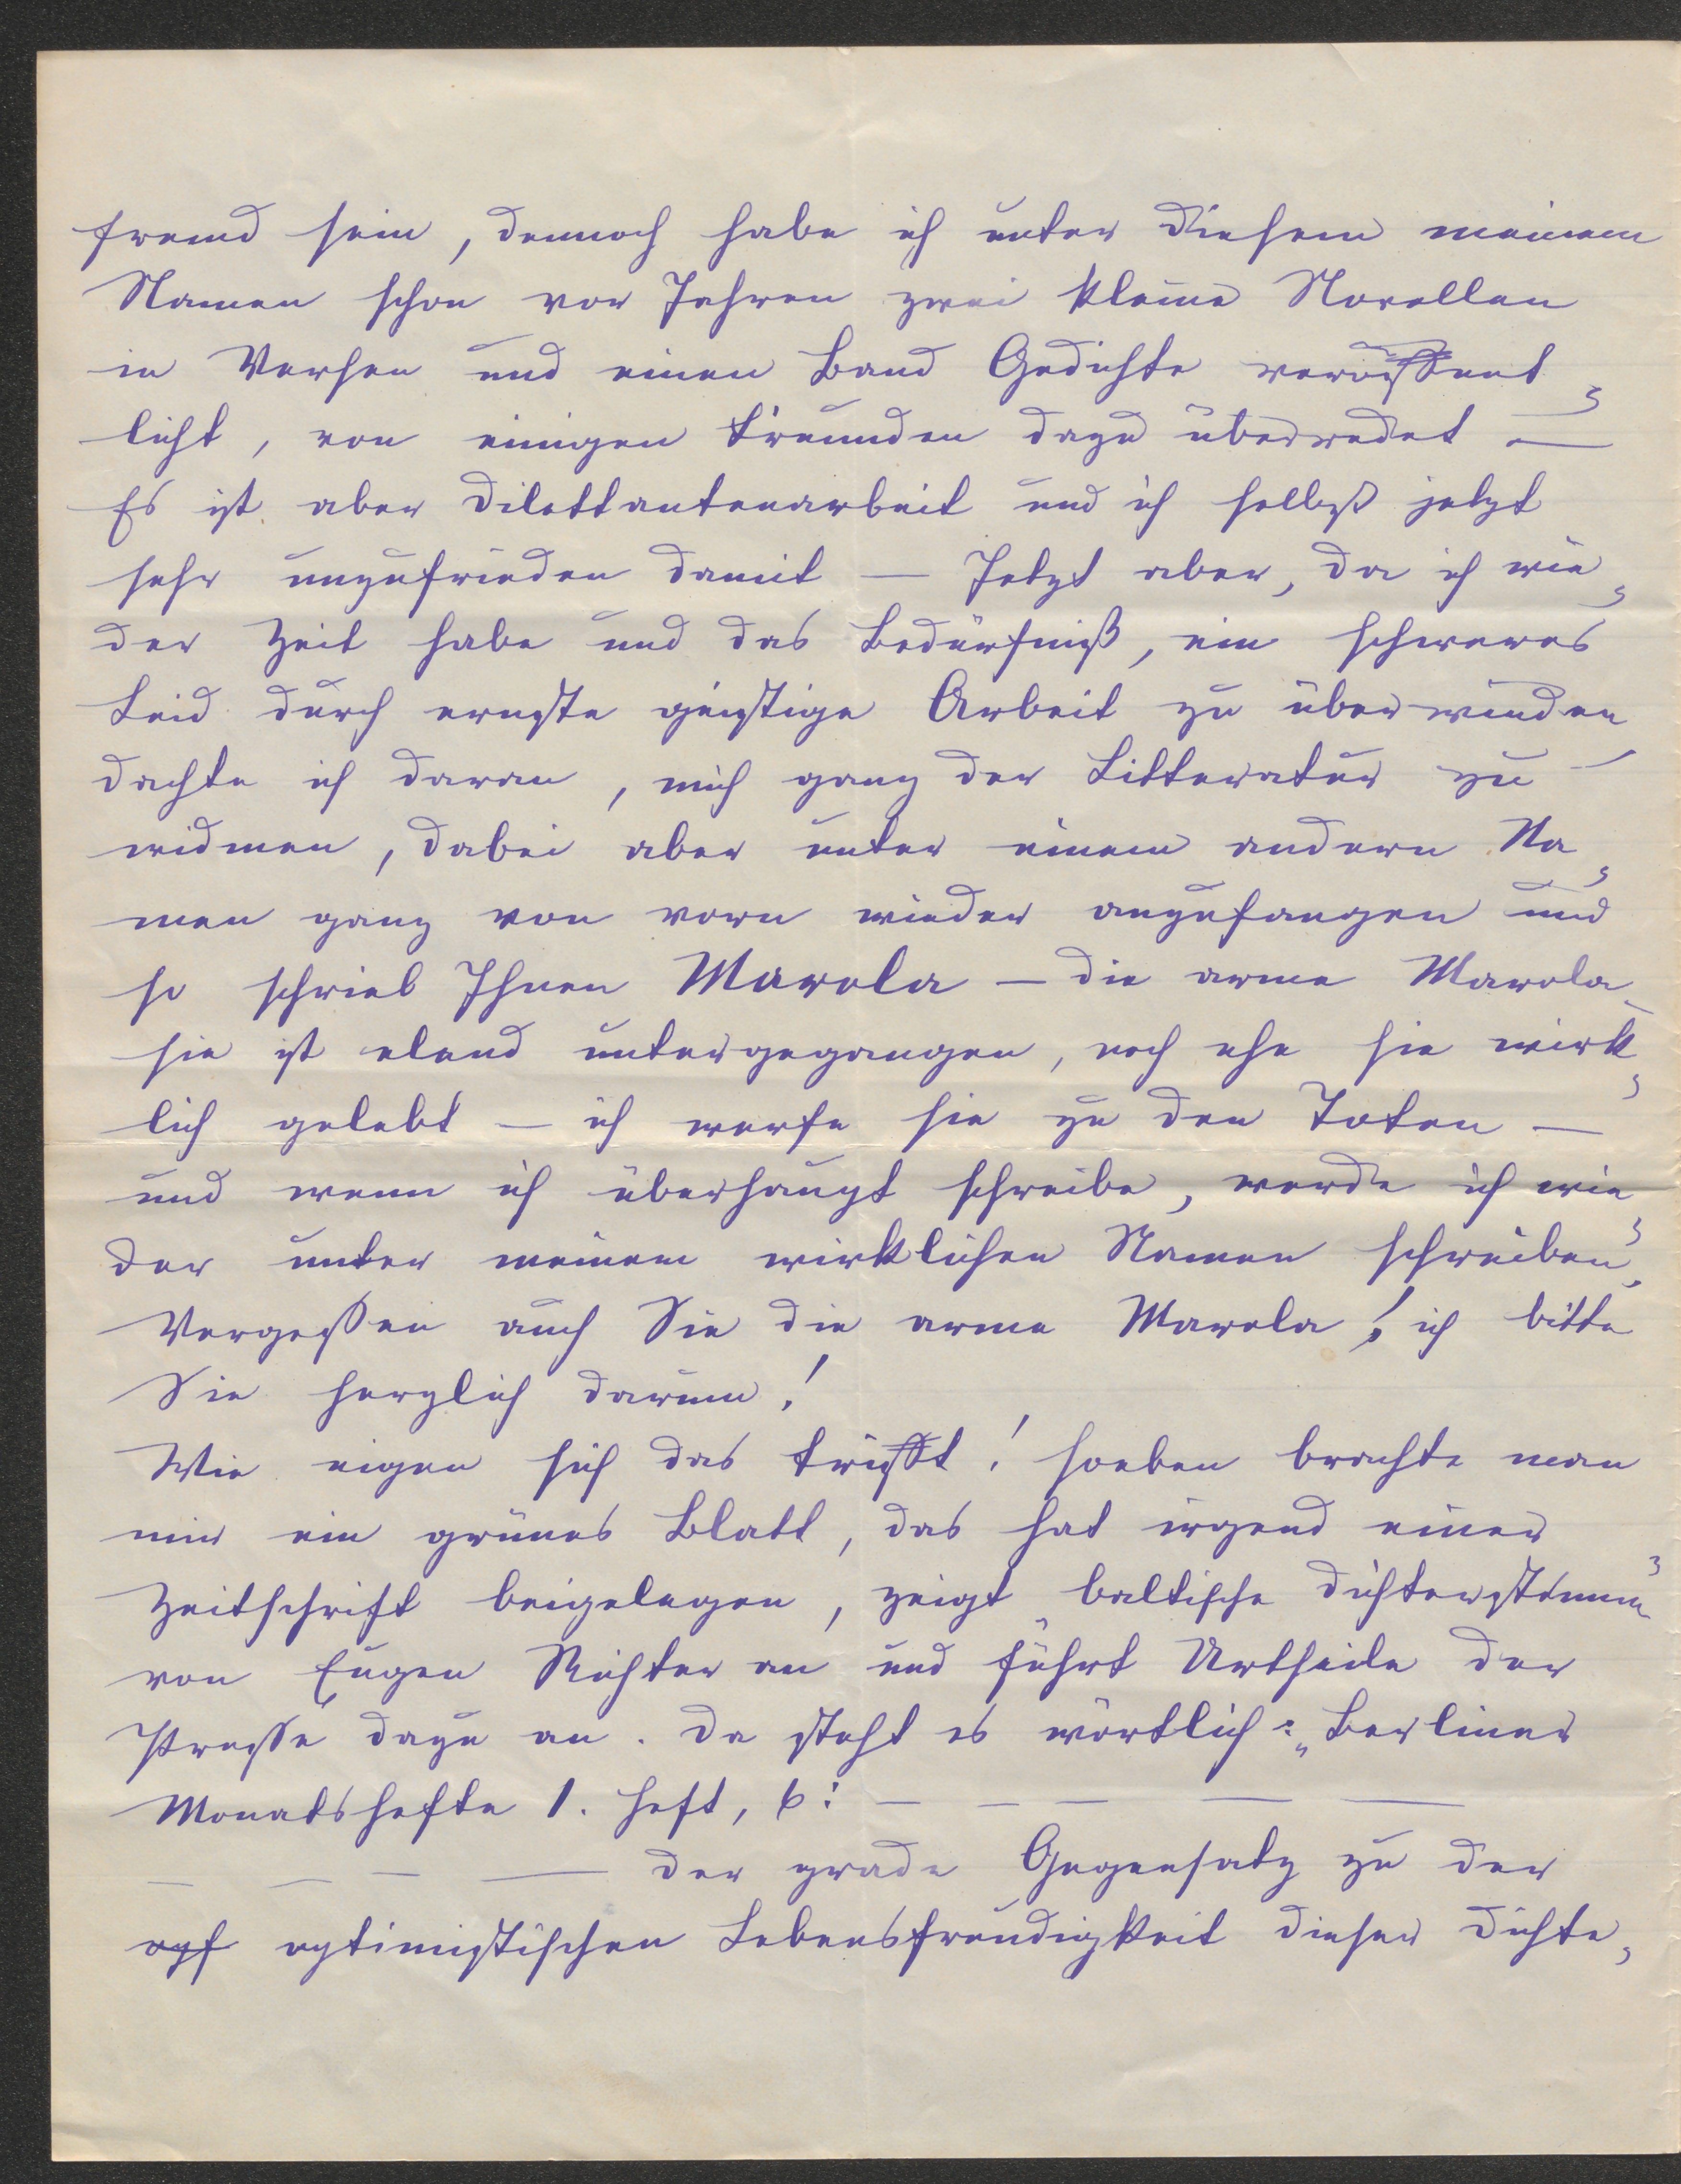 fremd sein, dennoch habe ich unter diesem meinem
Namen schon vor Jahren zwei kleine Novellen
in Versen und einen Band Gedichte veröffent-
licht, von einigen Freunden dazu überredet —
Es ist aber Dilettantenarbeit und ich selbst jetzt
sehr unzufrieden damit — Jetzt aber, da ich wie-
der Zeit habe und das Bedürfniß, ein schweres
Leid durch ernste geistige Arbeit zu überwinden
dachte ich daran, mich ganz der Litteratur zu
widmen, dabei aber unter einem andern Na-
men ganz von vorn wieder anzufangen und
so schrieb Ihnen Marola — die arme Marola
sie ist elend untergegangen, noch ehe sie wirk-
lich gelebt — ich werfe sie zu den Toten —
und wenn ich überhaupt schreibe, werde ich wie-
der unter meinem wirklichen Namen schreiben.
Vergessen auch Sie die arme Marola! ich bitte
Sie herzlich darum!
Wie eigen sich das trifft! soeben brachte man
mir ein grünes Blatt, das hat irgend einer
Zeitschrift beigelegen, zeigt „baltische Dichterstimm-
von Eugen Richter an und führt Urtheile der
Presse dazu an. Da steht es wörtlich: „Berliner
Monatshefte 1. Heft, 6: — — — — —
— — — — der grade Gegensatz zu der
opt optimistischen Lebensfreudigkeit dieser Dichte-